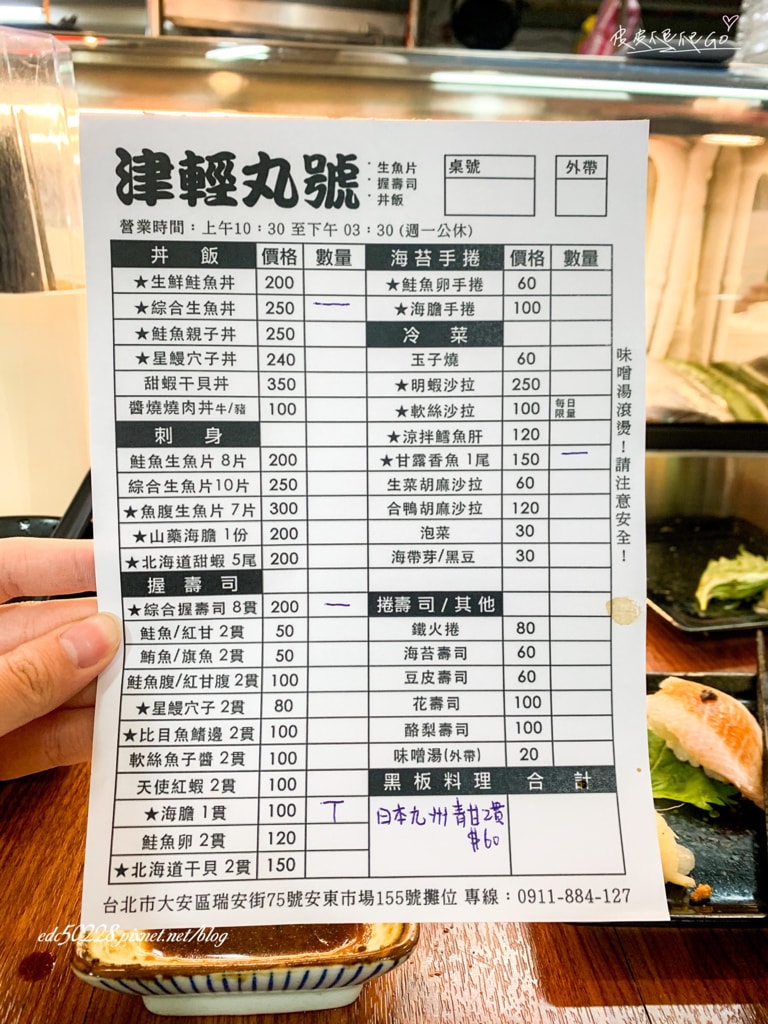 津輕丸號
·生魚片
·握壽司
·丼飯
桌號
外帶
營業時間：上午10：30 至下午 03：30 (週一公休)
丼 飯 價格 數量
★生鮮鮭魚丼 200
★綜合生魚丼 250 一
★鮭魚親子丼 250
★星鰻穴子丼 240
甜蝦干貝丼 350
醬燒燒肉丼牛/豬 100
刺 身
鮭魚生魚片 8片 200
綜合生魚片10片 250
★魚腹生魚片 7片 300
★山藥海膽 1份 200
★北海道甜蝦 5尾 200
握 壽 司
★綜合握壽司 8貫 200 一
鮭魚/紅甘 2貫 50
鮪魚/旗魚 2貫 50
鮭魚腹/紅甘腹 2貫 100
★星鰻穴子 2貫 80
★比目魚鰭邊 2貫 100
軟絲魚子醬 2貫 100
天使紅蝦 2貫 100
★海膽 1貫 100 T
鮭魚卵 2貫 120
★北海道干貝 2貫 150
海苔手捲 價格 數量
★鮭魚卵手捲 60
★海膽手捲 100
冷 菜
玉子燒 60
★明蝦沙拉 250
★軟絲沙拉 100 每日限量
★涼拌鱈魚肝 120
★甘露香魚 1尾 150 一
生菜胡麻沙拉 60
合鴨胡麻沙拉 120
泡菜 30
海帶芽/黑豆 30
捲壽司/其他
鐵火捲 80
海苔壽司 60
豆皮壽司 60
花壽司 100
酪梨壽司 100
味噌湯(外帶) 20
黑板料理 合 計
日本九州青甘2貫
$60
味噌湯滾燙！請注意安全！
台北市大安區瑞安街75號安東市場155號攤位 專線：0911-884-127
edc50228.pixnet.net/blog